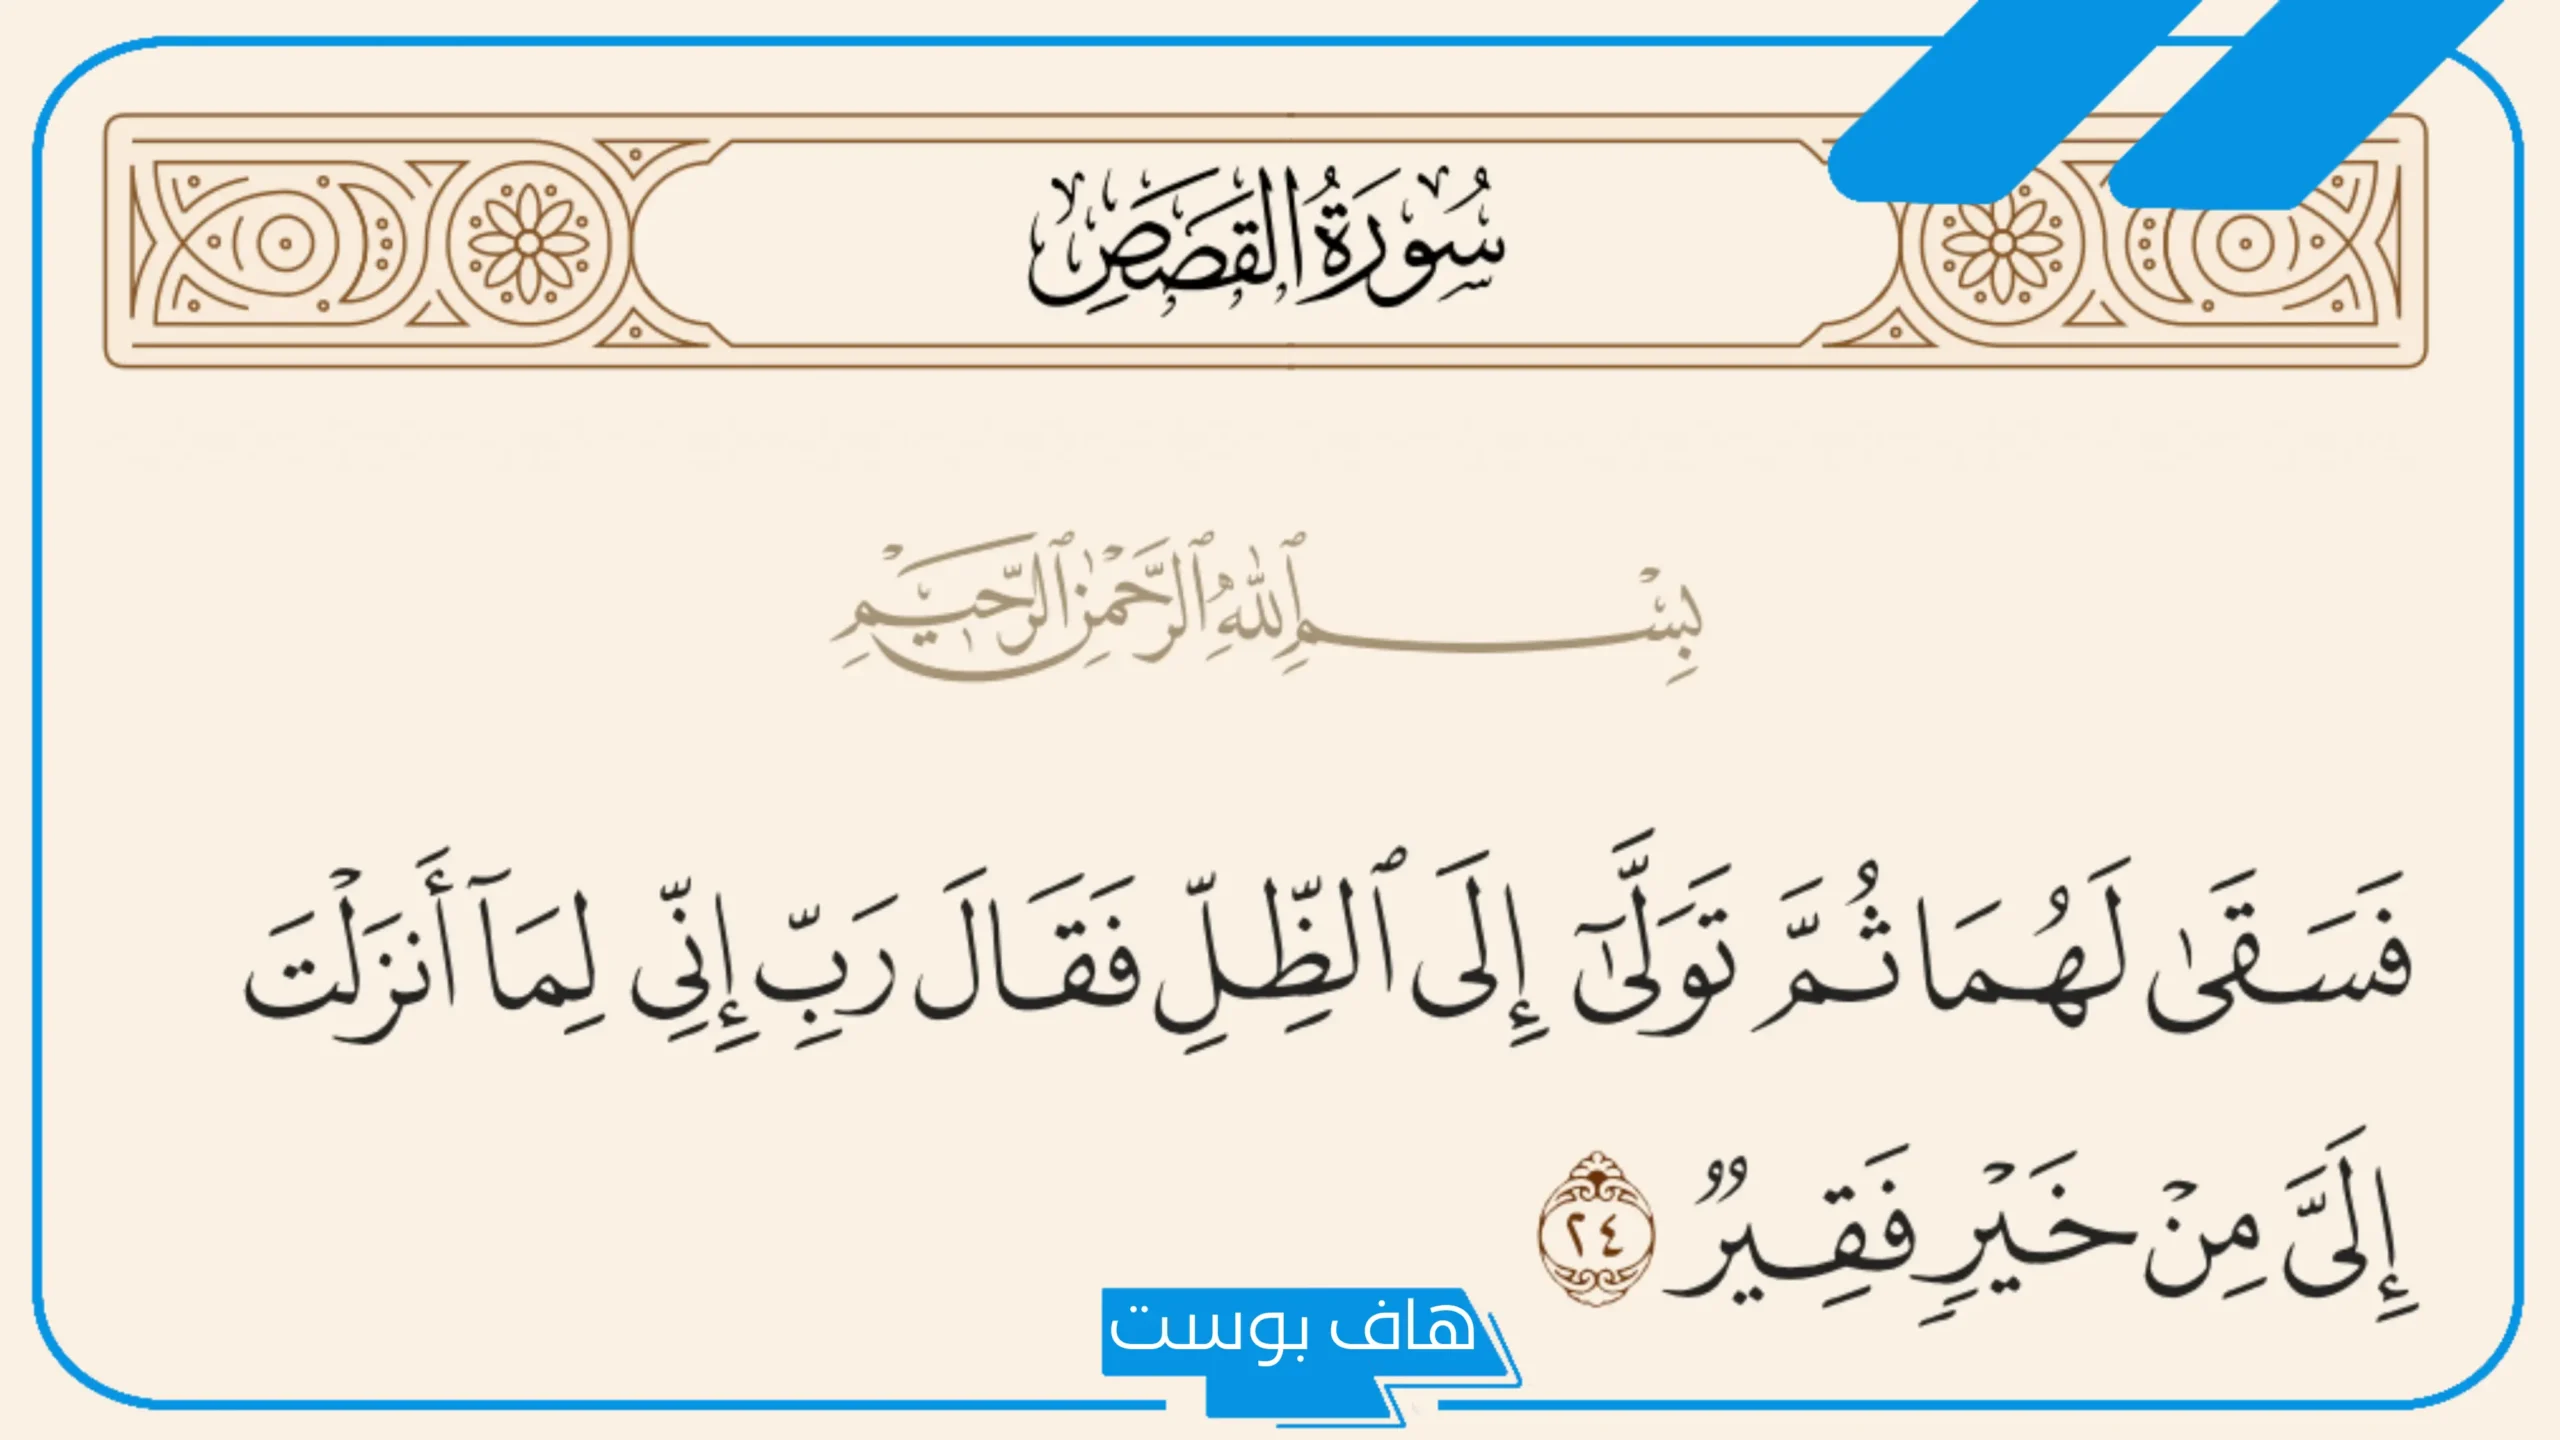 سُورَةُ القَصَصِ
بِسْمِ ٱللَّهِ ٱلرَّحْمَٰنِ ٱلرَّحِيمِ
فَسَقَىٰ لَهُمَا ثُمَّ تَوَلَّىٰٓ إِلَى ٱلظِّلِّ فَقَالَ رَبِّ إِنِّى لِمَآ أَنزَلْتَ
إِلَىَّ مِنْ خَيْرٍ فَقِيرٌ ٢٤
هاف بوست